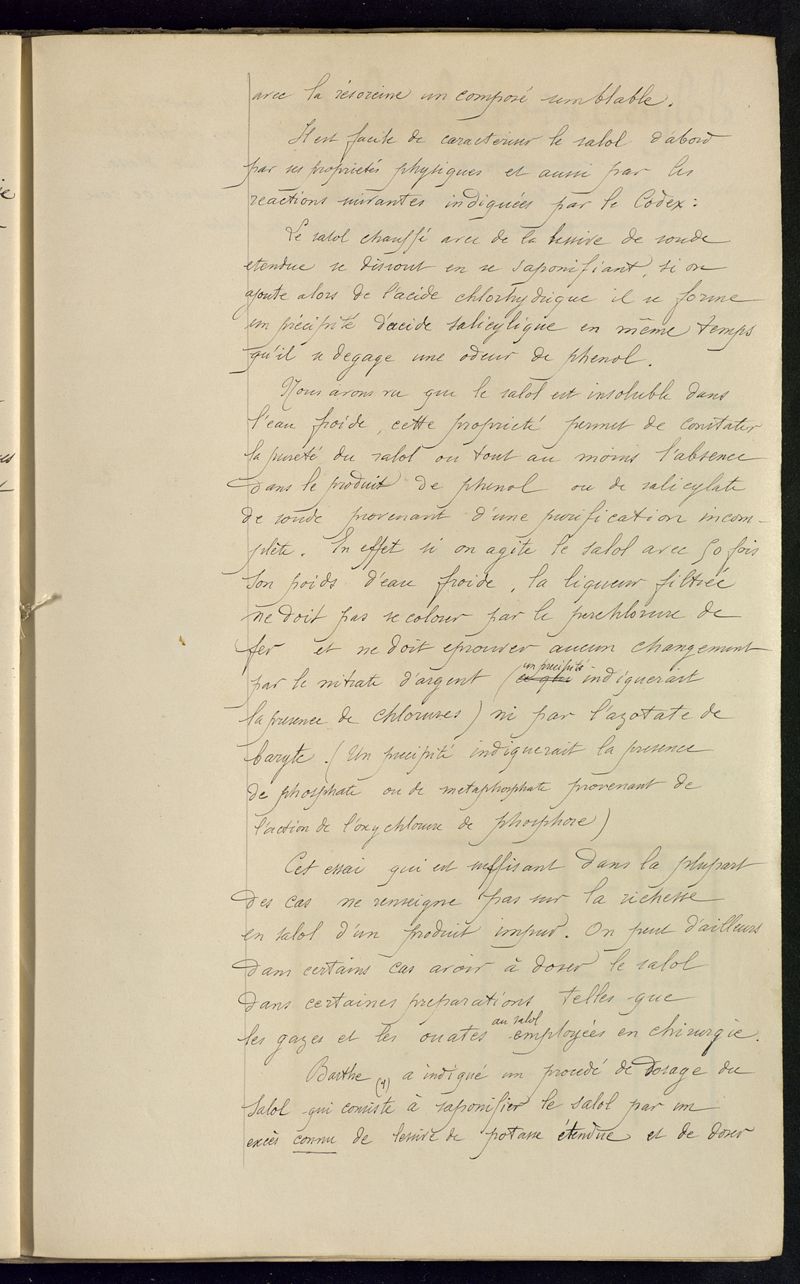 avec la résorcine un composé semblable.
Il est facile de caractériser le salol d'abord
par ses propriétés physiques et aussi par les
reactions suivantes indiquées par le Codex:
Le salol chauffé avec de la lessive de soude
etendue se dissout en se saponifiant, si on
ajoute alors de l'acide chlorhydrique il se forme
un précipité d'acide salicylique en même temps
qu'il se degage une odeur de phenol.
Nous avons vu que le salol est insoluble dans
l'eau froide, cette propriété permet de constater
la pureté du salol ou tout au moins l'absence
dans le produit de phenol ou de salicylate
de soude provenant d'une purification incom-
plète. En effet si on agite le salol avec 50 fois
son poids d'eau froide, la liqueur filtrée
ne doit pas se colorer par le perchlorure de
fer et ne doit eprouver aucun changement
par le nitrate d'argent (un precipité indiquerait
la presence de chlorures) ni par l'azotate de
baryte. (Un precipité indiquerait la presence
de phosphate ou de metaphosphate provenant de
l'action de l'oxychlorure de phosphore)
Cet essai qui est suffisant dans la plupart
des cas ne renseigne pas sur la richesse
en salol d'un produit impur. On peut d'ailleurs
dans certains cas avoir à doser le salol
dans certaines preparations telles que
les gazes et les ouates au salol employées en chirurgie.
Barthe (1) a indiqué un procedé de dosage du
Salol qui consiste à saponifier le salol par un
excès connu de lessive de potasse étendue et de doser